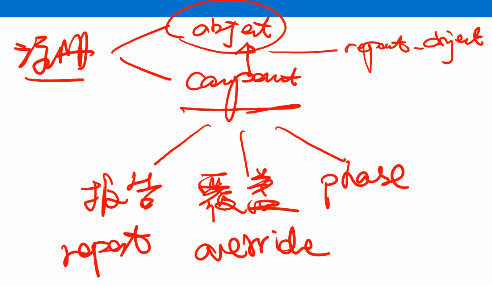 object
注册
report_object
component
报告 覆盖 phase
report override